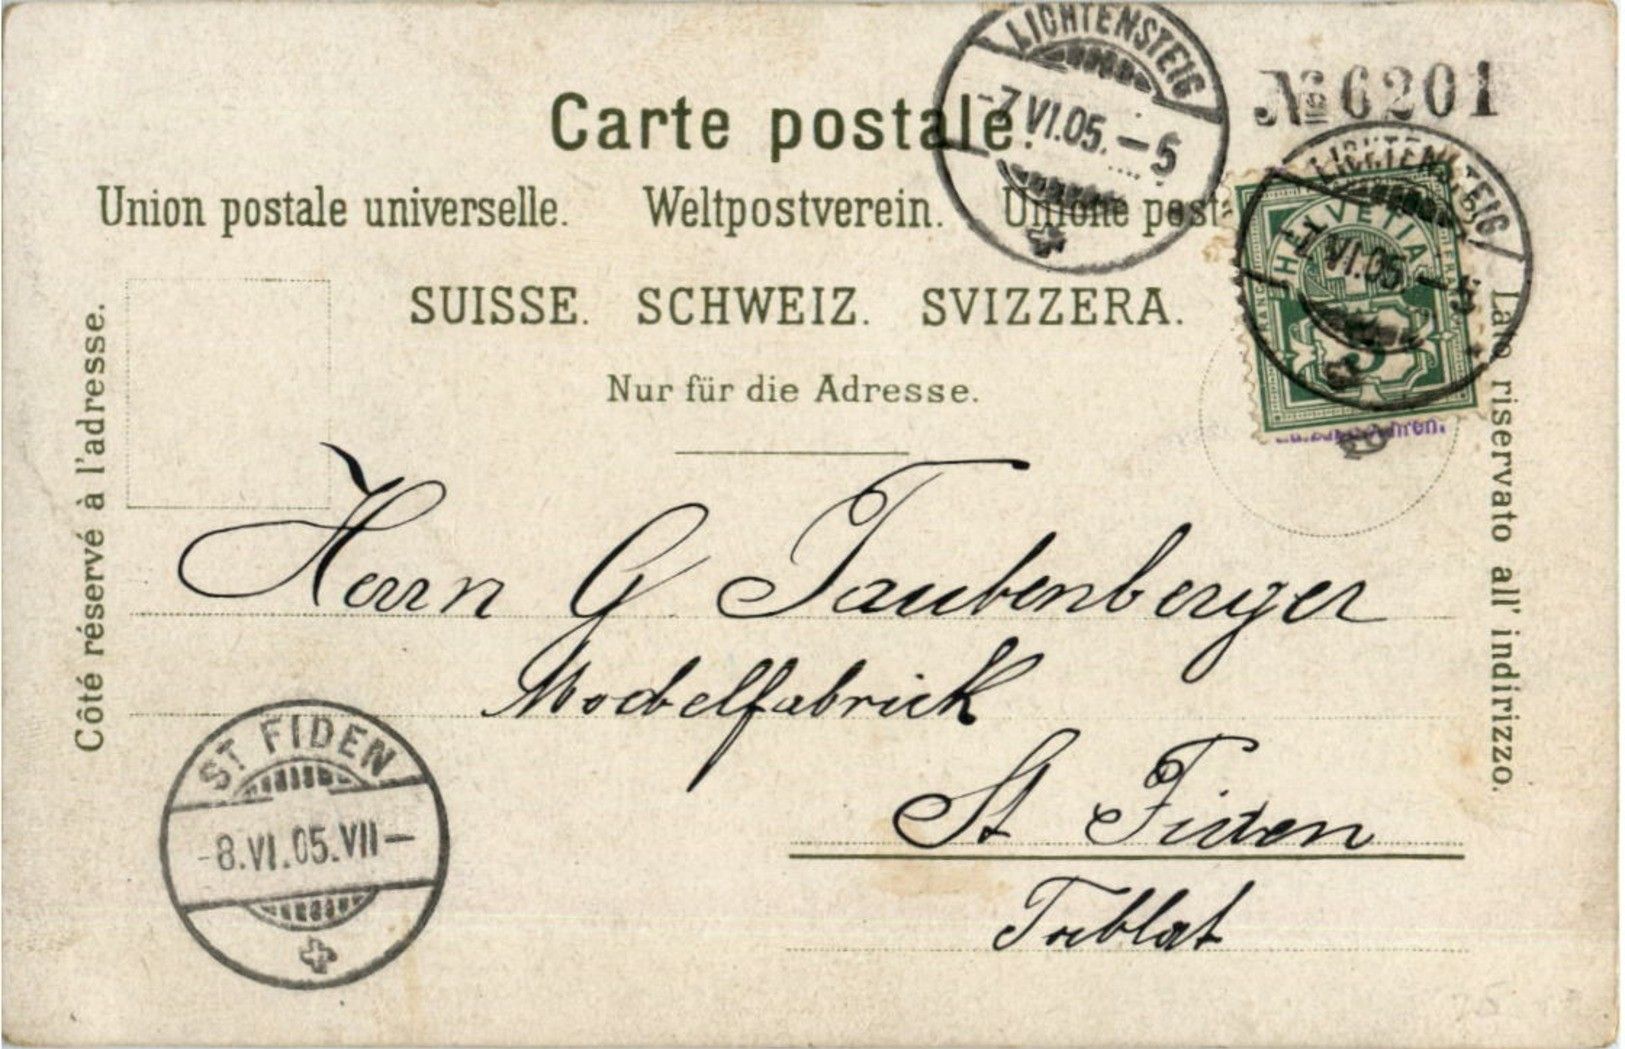 LICHTENSTEIG
-7.VI.05.-5
№ 6201
Carte postale.
Union postale universelle. Weltpostverein. Unione post
SUISSE. SCHWEIZ. SVIZZERA.
Nur für die Adresse.
LICHTENSTEIG
VI.05.-5
HELVETIA
FRANCO
5
Côté réservé à l'adresse.
Lato riservato all' indirizzo.
Herrn G Taubenberger
Modelfabrick
St Fiden
Tablat
ST FIDEN
-8.VI.05.VII-